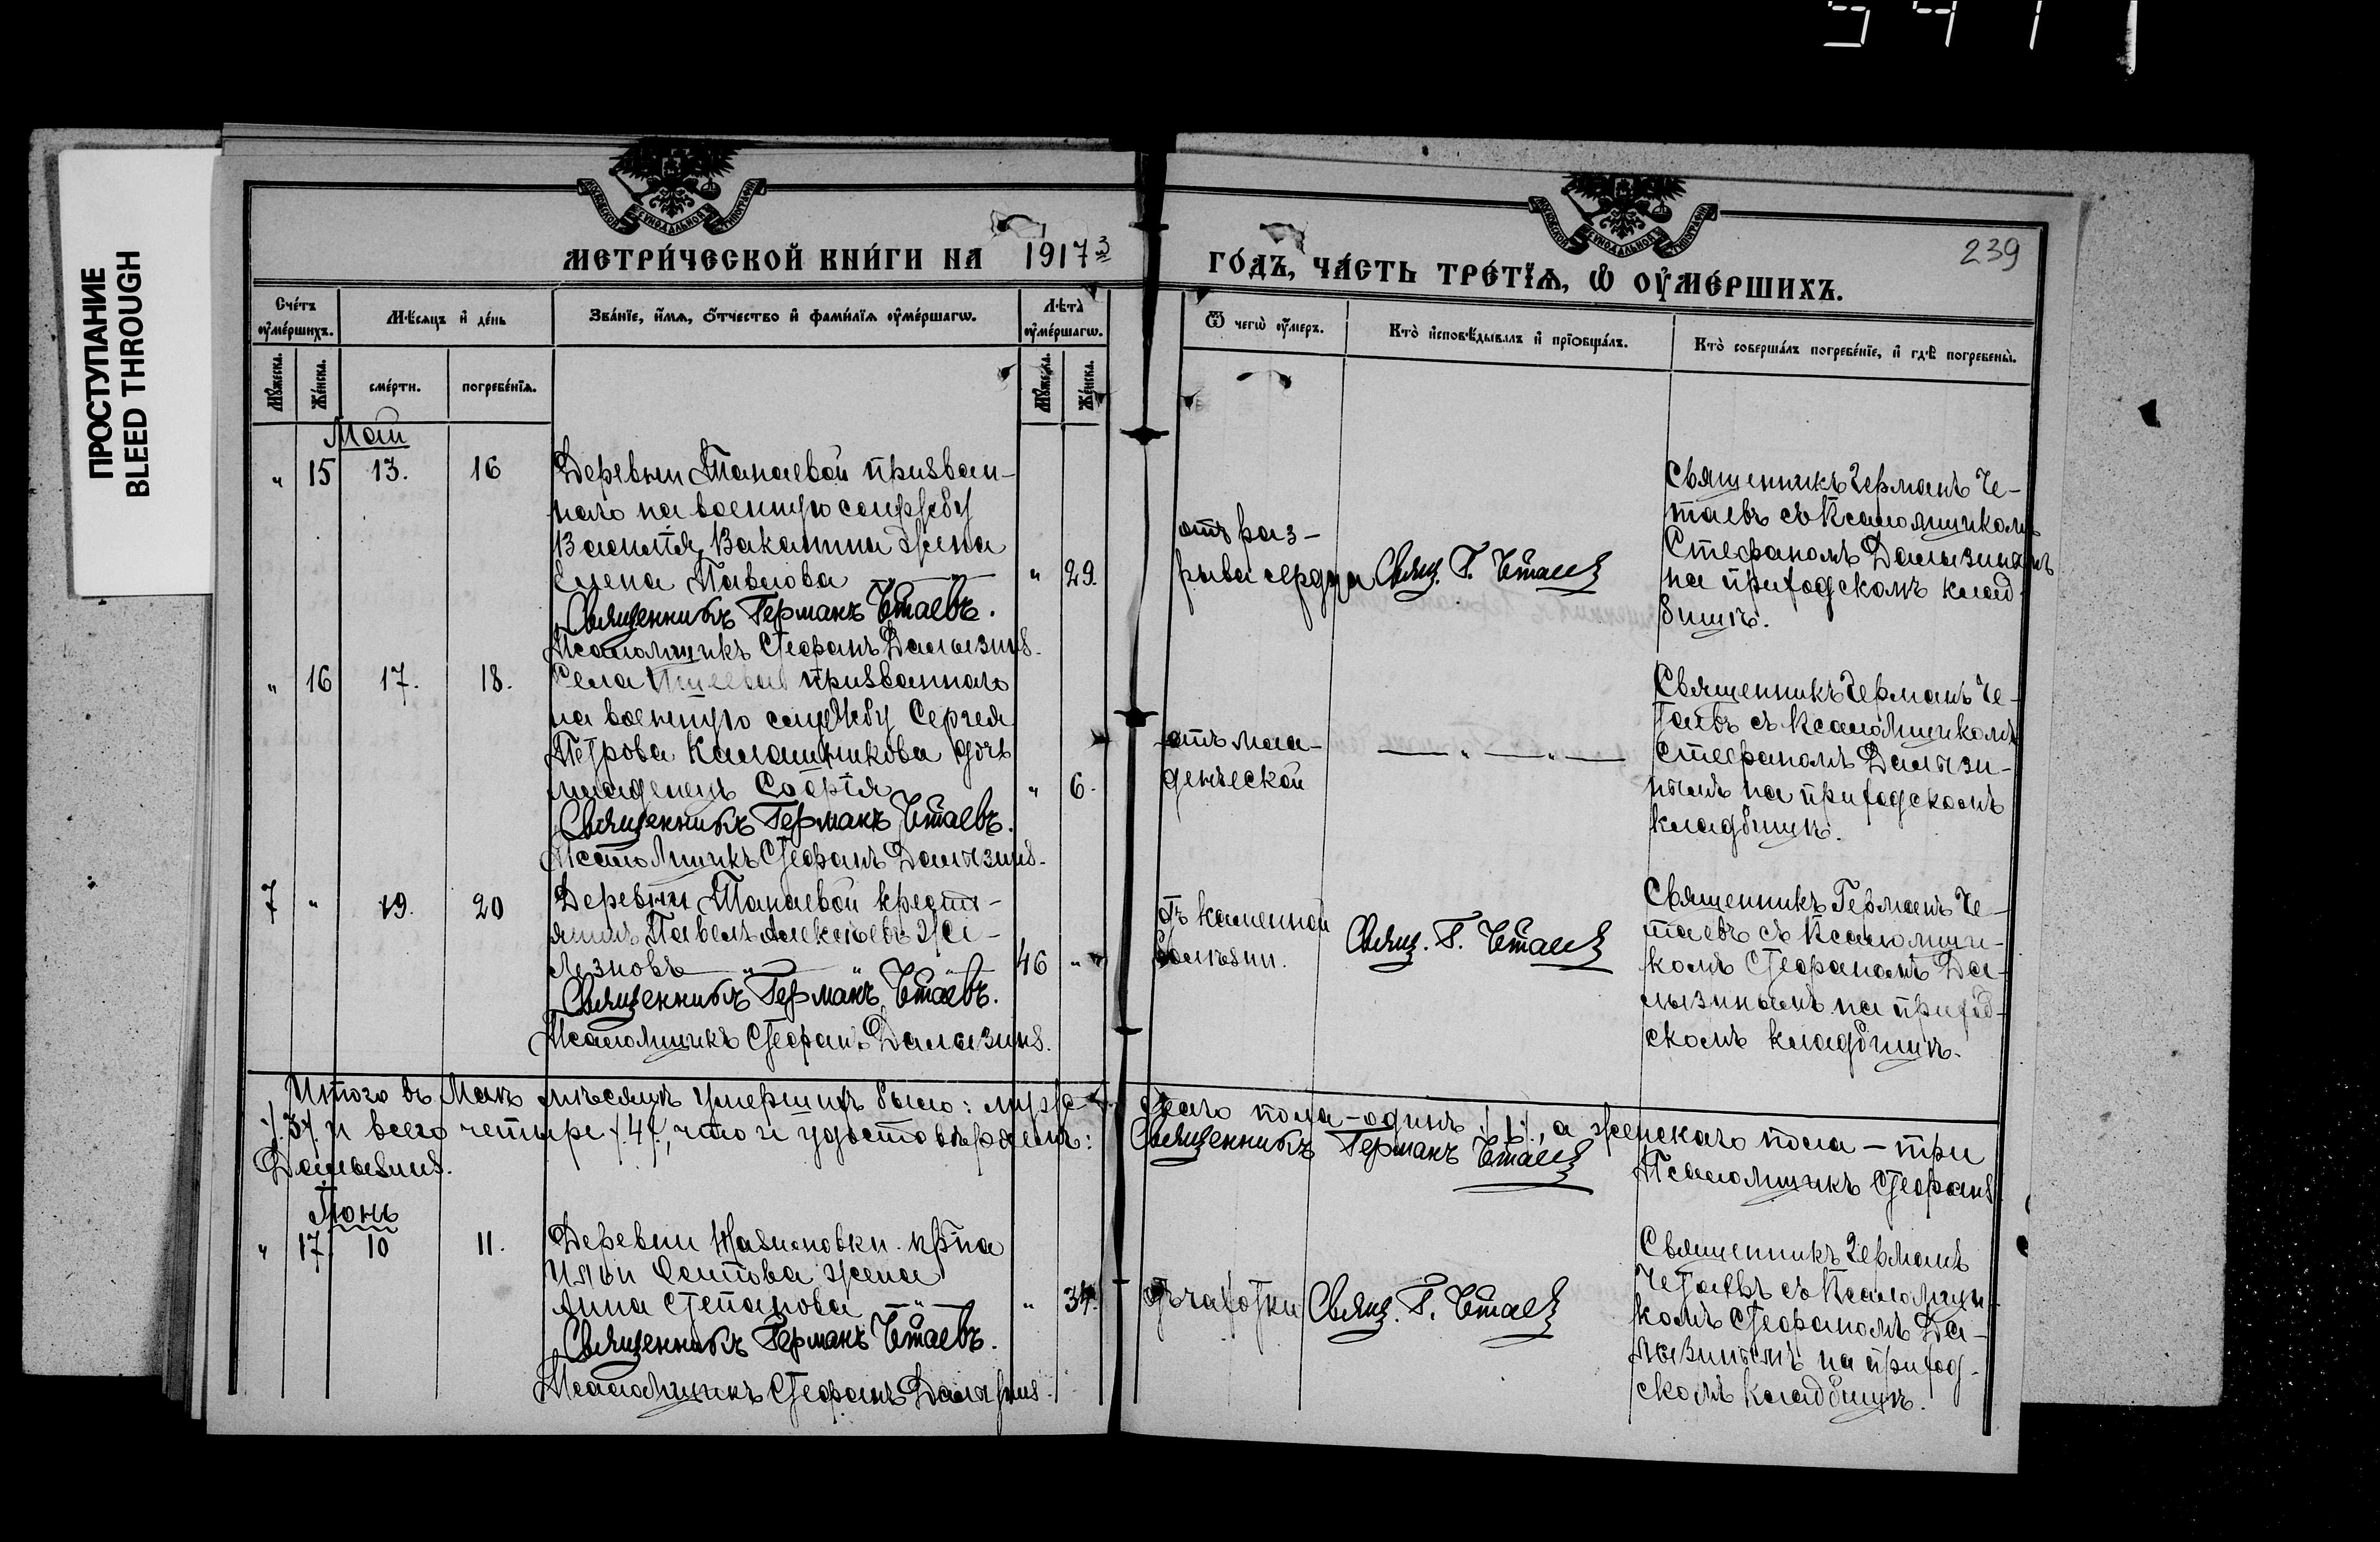 5 9 1 1
ПРОСТУПАНИЕ
BLEED THROUGH
МЕТРИ́ЧЕСКОЙ КНИ́ГИ НА 1917
ГО́ДЪ, ЧА́СТЬ ТРЕ́ТЇѦ, Ѡ҆ ОУ҆МЕ́РШИХЪ.
239
Сче́тъ оу҆ме́ршихъ.
Мѣ́сяцъ и҆ де́нь
Зва́нїе, и҆́мѧ, ѻ҆́тчество и҆ фами́лїѧ оу҆ме́ршагѡ.
Лѣта̀ оу҆ме́ршагѡ.
Ѿ чегѡ̀ оу҆́меръ.
Кто̀ и҆сповѣ́дывалъ и҆ прїѻбща́лъ.
Кто̀ соверша́лъ погребе́нїе, и҆ гдѣ̀ погребены̀.
Му́жеска.
Же́нска.
сме́рти.
погребе́нїѧ.
Му́жеска.
Же́нска.
Май
" 15 13. 16
Деревни Танаевой призван-
наго на военную службу
Василія Вакатина жена
Елена Павлова
" 29.
Священникъ Германъ Четаевъ.
Псаломщикъ Стефанъ Далызинъ.
отъ раз-
рыва сердца
Свящ. Г. Четаевъ
Священникъ Германъ Че-
таевъ съ Псаломщикомъ
Стефаномъ Далызинымъ
на приходскомъ клад-
бищѣ.
" 16 17. 18.
Села призваннаго
на военную службу Сергея
Петрова Калашникова дочь
младенецъ Софія
" 6.
Священникъ Германъ Четаевъ.
Псаломщикъ Стефанъ Далызинъ.
отъ мла-
денческой
— " — " —
Священникъ Германъ Че-
таевъ съ Псаломщикомъ
Стефаномъ Далызи-
нымъ на приходскомъ
кладбищѣ.
7 " 19. 20
Деревни Танаевой крестья-
янинъ Павелъ Алексѣевъ Же-
лезновъ
46 "
Священникъ Германъ Четаевъ.
Псаломщикъ Стефанъ Далызинъ.
отъ каменной
болѣзни.
Свящ. Г. Четаевъ
Священникъ Германъ Че-
таевъ съ Псаломщи-
комъ Стефаномъ Да-
лызинымъ на приход-
скомъ кладбищѣ.
Итого въ Маѣ мѣсяцѣ умершихъ было: мужескаго пола – одинъ /.1/., а женскаго пола – три
/.3/. и всего четыре /.4/., что и удостовѣряемъ: Священникъ Германъ Четаевъ
Псаломщикъ Стефанъ
Далызинъ.
Іюнь
" 17. 10 11.
Деревни кр̃на
Ильи жена
Анна Степанова
" 34.
Священникъ Германъ Четаевъ.
Псаломщикъ Стефанъ Далызинъ.
отъ чахотки
Свящ. Г. Четаевъ
Священникъ Германъ
Четаевъ съ Псаломщи-
комъ Стефаномъ Да-
лызинымъ на приход-
скомъ кладбищѣ.